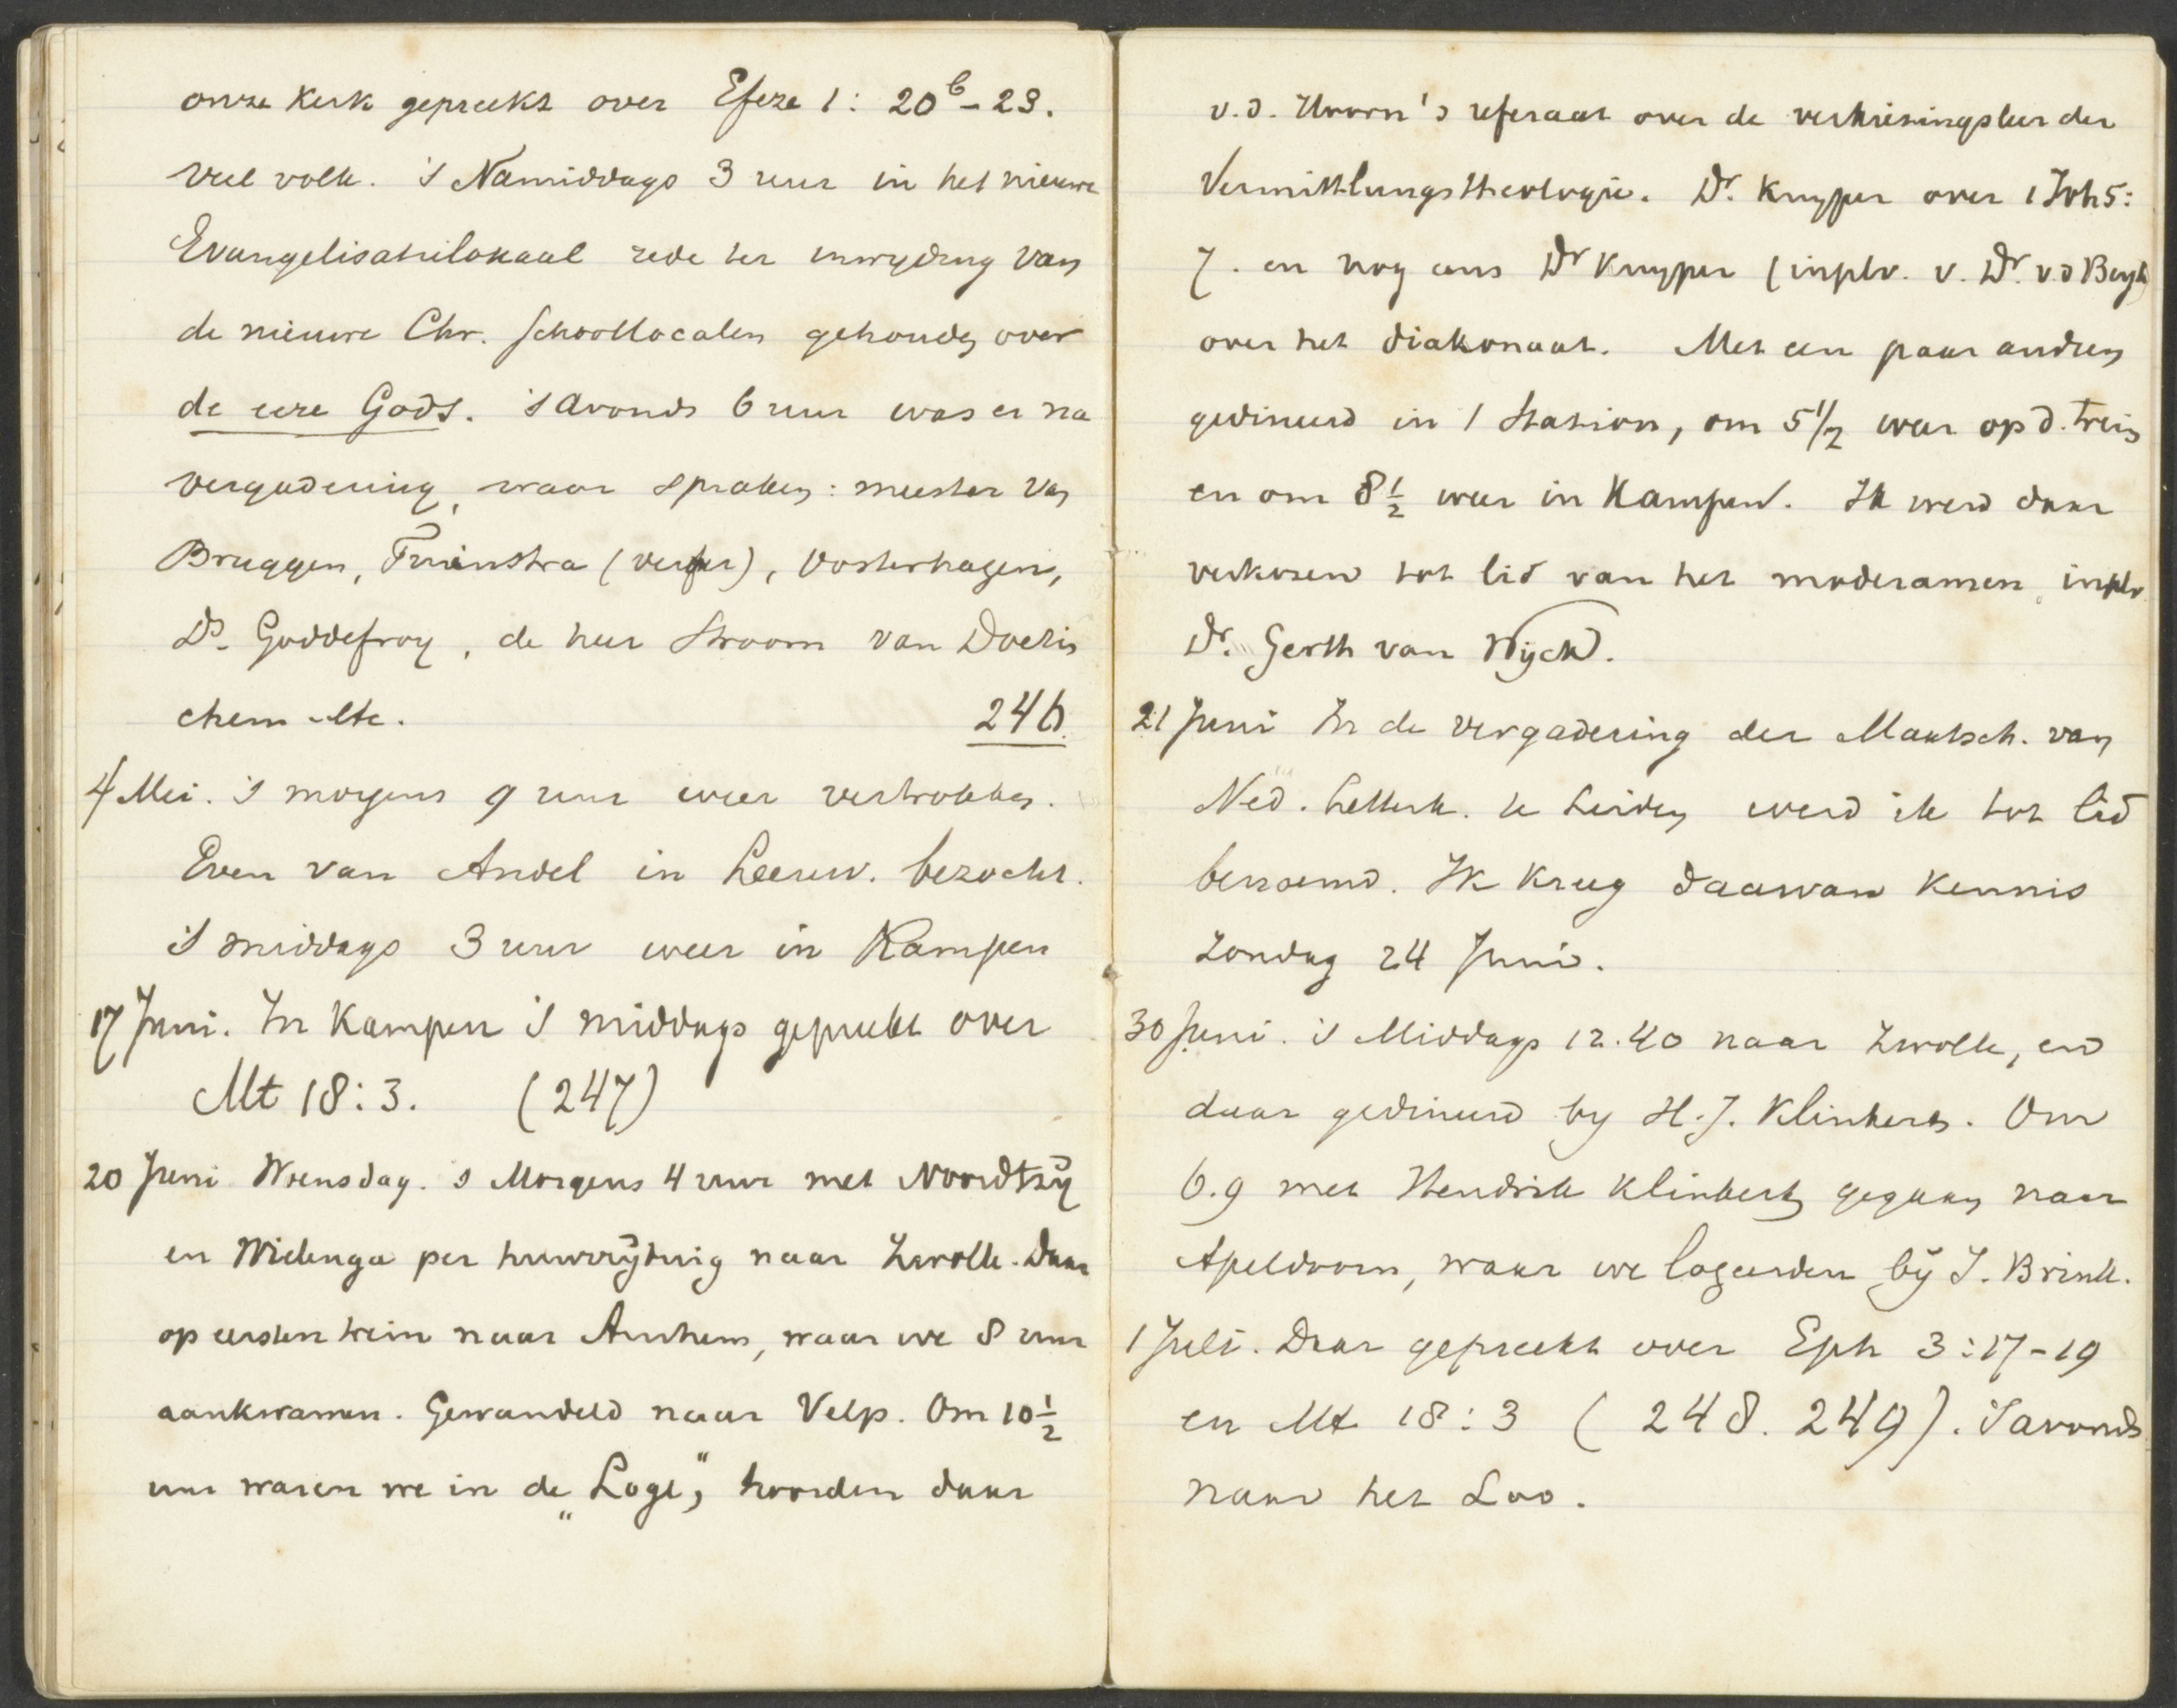 onze Kerk gepreekt over Efeze 1: 20b-23.
veel volk. 's Namiddags 3 uur in het nieuwe
Evangelisatielokaal rede ter inwyding van
de nieuwe Chr. Schoollocalen gehouden over
de eere Gods. 's avonds 6 uur was er na
vergadering, waar spraken: meester van
Bruggen, Tuinstra (verver), Oosterhagen,
Ds. Goddefroy, de heer Stroom van Doetin
chem etc. 246.
4 Mei. 's morgens 9 uur weer vertrokken.
Even van Andel in Leeuw. bezocht.
's middags 3 uur weer in Kampen
17 Juni. In Kampen 's middags gepreekt over
Mt 18:3. (247)
20 Juni Woensdag. 's Morgens 4 uur met Noordtzij
en Wielenga per huurrijtuig naar Zwolle. Daar
op eersten trein naar Arnhem, waar we 8 uur
aankwamen. Gewandeld naar Velp. Om 10 1/2
uur waren we in de „Loge", hoorden daar
v.d. Hoorn's referaat over de verkiezingsleer der
Vermittlungstheologie. Dr. Kuyper over 1 Joh 5:
7. en nog eens Dr Kuyper (in plv. v. Dr. v.d Bergh)
over het diakonaat. Met een paar andren
gedineerd in 1 Station, om 5 1/2 weer op d. trein
en om 8 1/2 weer in Kampen. Ik werd daar
verkozen tot lid van het moderamen, in plv
Dr. Gerth van Wijck.
21 Juni In de vergadering der Maatsch. van
Ned. Letterk. te Leiden werd ik tot lid
benoemd. Ik kreeg daarvan kennis
Zondag 24 Juni.
30 Juni. 's Middags 12.40 naar Zwolle, en
daar gedineerd by H.J. Klinkert. Om
6.9 met Hendrik Klinkert gegaan naar
Apeldoorn, waar we logeerden bij J. Brink.
1 Juli. Daar gepreekt over Eph 3:17-19
en Mt 18:3 (248. 249). 's avonds
naar het Loo.